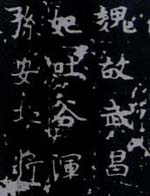 魏故武昌
妃吐谷渾
孫安北將